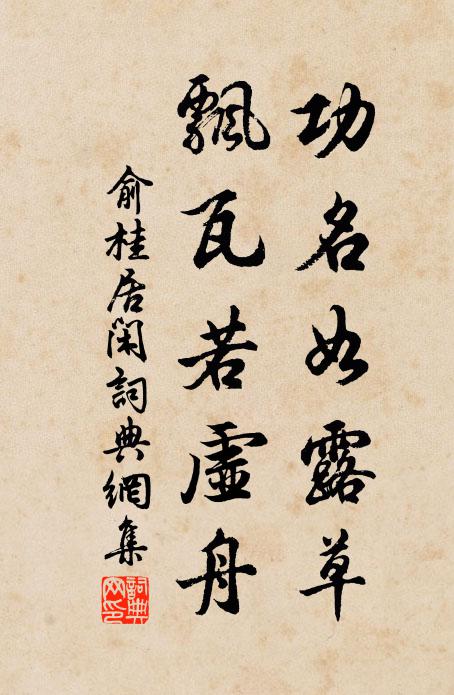 功名如露草
飄瓦若虛舟
俞桂居閑詞典網集
詞典網印